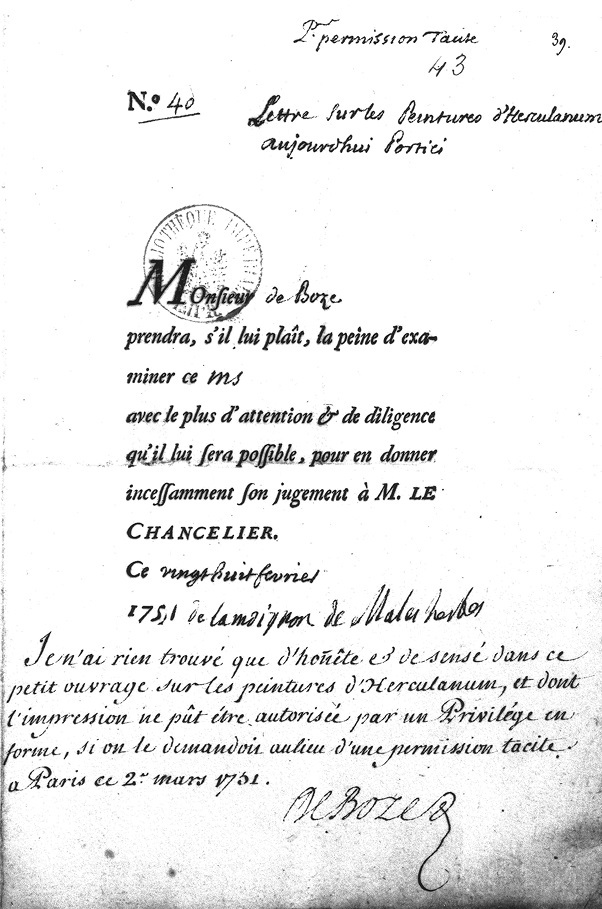 Pr. permission Tacite
39.
43
N.º 40
Lettre sur les Peintures d'Herculanum
aujourdhui Portici
BIBLIOTHÈQUE IMPÉRIALE
MONsieur de Boze
prendra, s'il lui plaît, la peine d'exa-
miner ce ms
avec le plus d'attention & de diligence
qu'il lui sera possible, pour en donner
incessamment son jugement à M. LE
CHANCELIER.
Ce vingt huit fevrier
1751 de lamoignon de Malesherbes
Je n'ai rien trouvé que d'hoñête et de sensé dans ce
petit ouvrage sur les peintures d'Herculanum, et dont
l'impression ne pût étre autorisée par un Privilége en
forme, si on le demandoit aulieu d'une permission tacite.
a Paris ce 2.r mars 1751.
DE BOZE